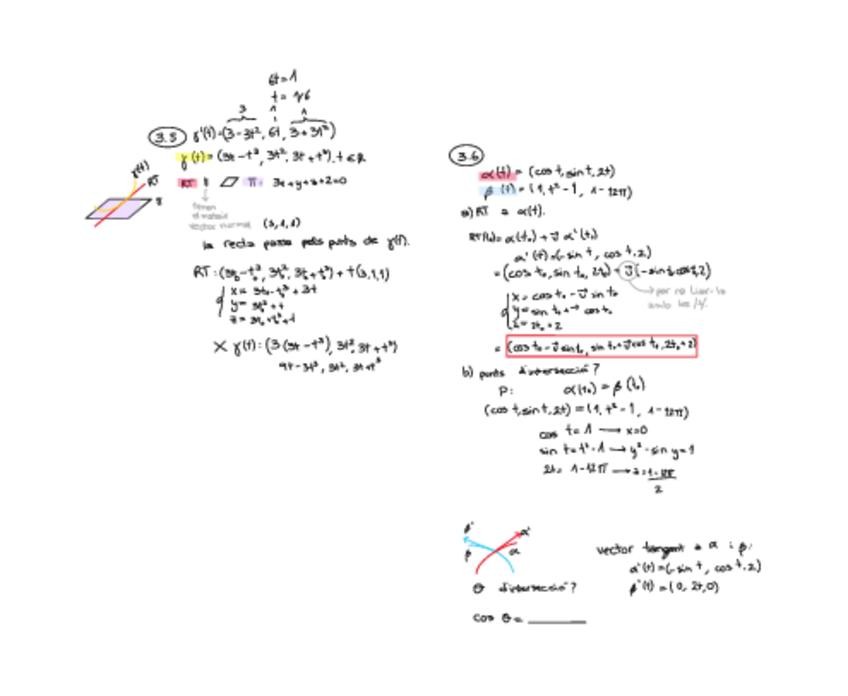 6t=1
t = 1/6
3 1 1
3.5 γ'(t)=(3-3t², 6t, 3+3t²)
γ(t) = (3t-t³, 3t², 3t+t³), t ∈ R
RT ∥ π: 3x+y+z+2=0
γ(t)
RT
π
tenen
el mateix
vector normal (3,1,1)
la recta passa pels punts de γ(t).
RT: (3t₀-t₀³, 3t₀², 3t₀+t₀³) + t(3,1,1)
x = 3t₀-t₀³+3t
y = 3t₀²+t
z = 3t₀+t₀³+t
X γ(t): (3(3t-t³), 3t², 3t+t³)
9t-3t³, 3t², 3t+t³
3.6
α(t) = (cos t, sin t, 2t)
β(t) = (1, t²-1, 1-12π)
a) RT a α(t).
RT(t₀) = α(t₀) + J α'(t₀)
α'(t) = (-sin t, cos t, 2)
= (cos t₀, sin t₀, 2t₀) + J(-sin t₀, cos t₀, 2)
per no liar-la
amb les
x = cos t₀ - J sin t₀
y = sin t₀ + J cos t₀
z = 2t₀+2
= (cos t₀ - J sin t₀, sin t₀ + J cos t₀, 2t₀+2)
b) punts d'intersecció?
P: α(t₀) = β(t₀)
(cos t, sin t, 2t) = (1, t²-1, 1-12π)
cos t = 1 → x=0
sin t = t²-1 → y²-sin y=1
2t = 1-12π → z = 1-12π
2
β'
α'
β
α
vector tangent a α i β:
α'(t) = (-sin t, cos t, 2)
β'(t) = (0, 2t, 0)
θ d'intersecció?
cos θ = ______